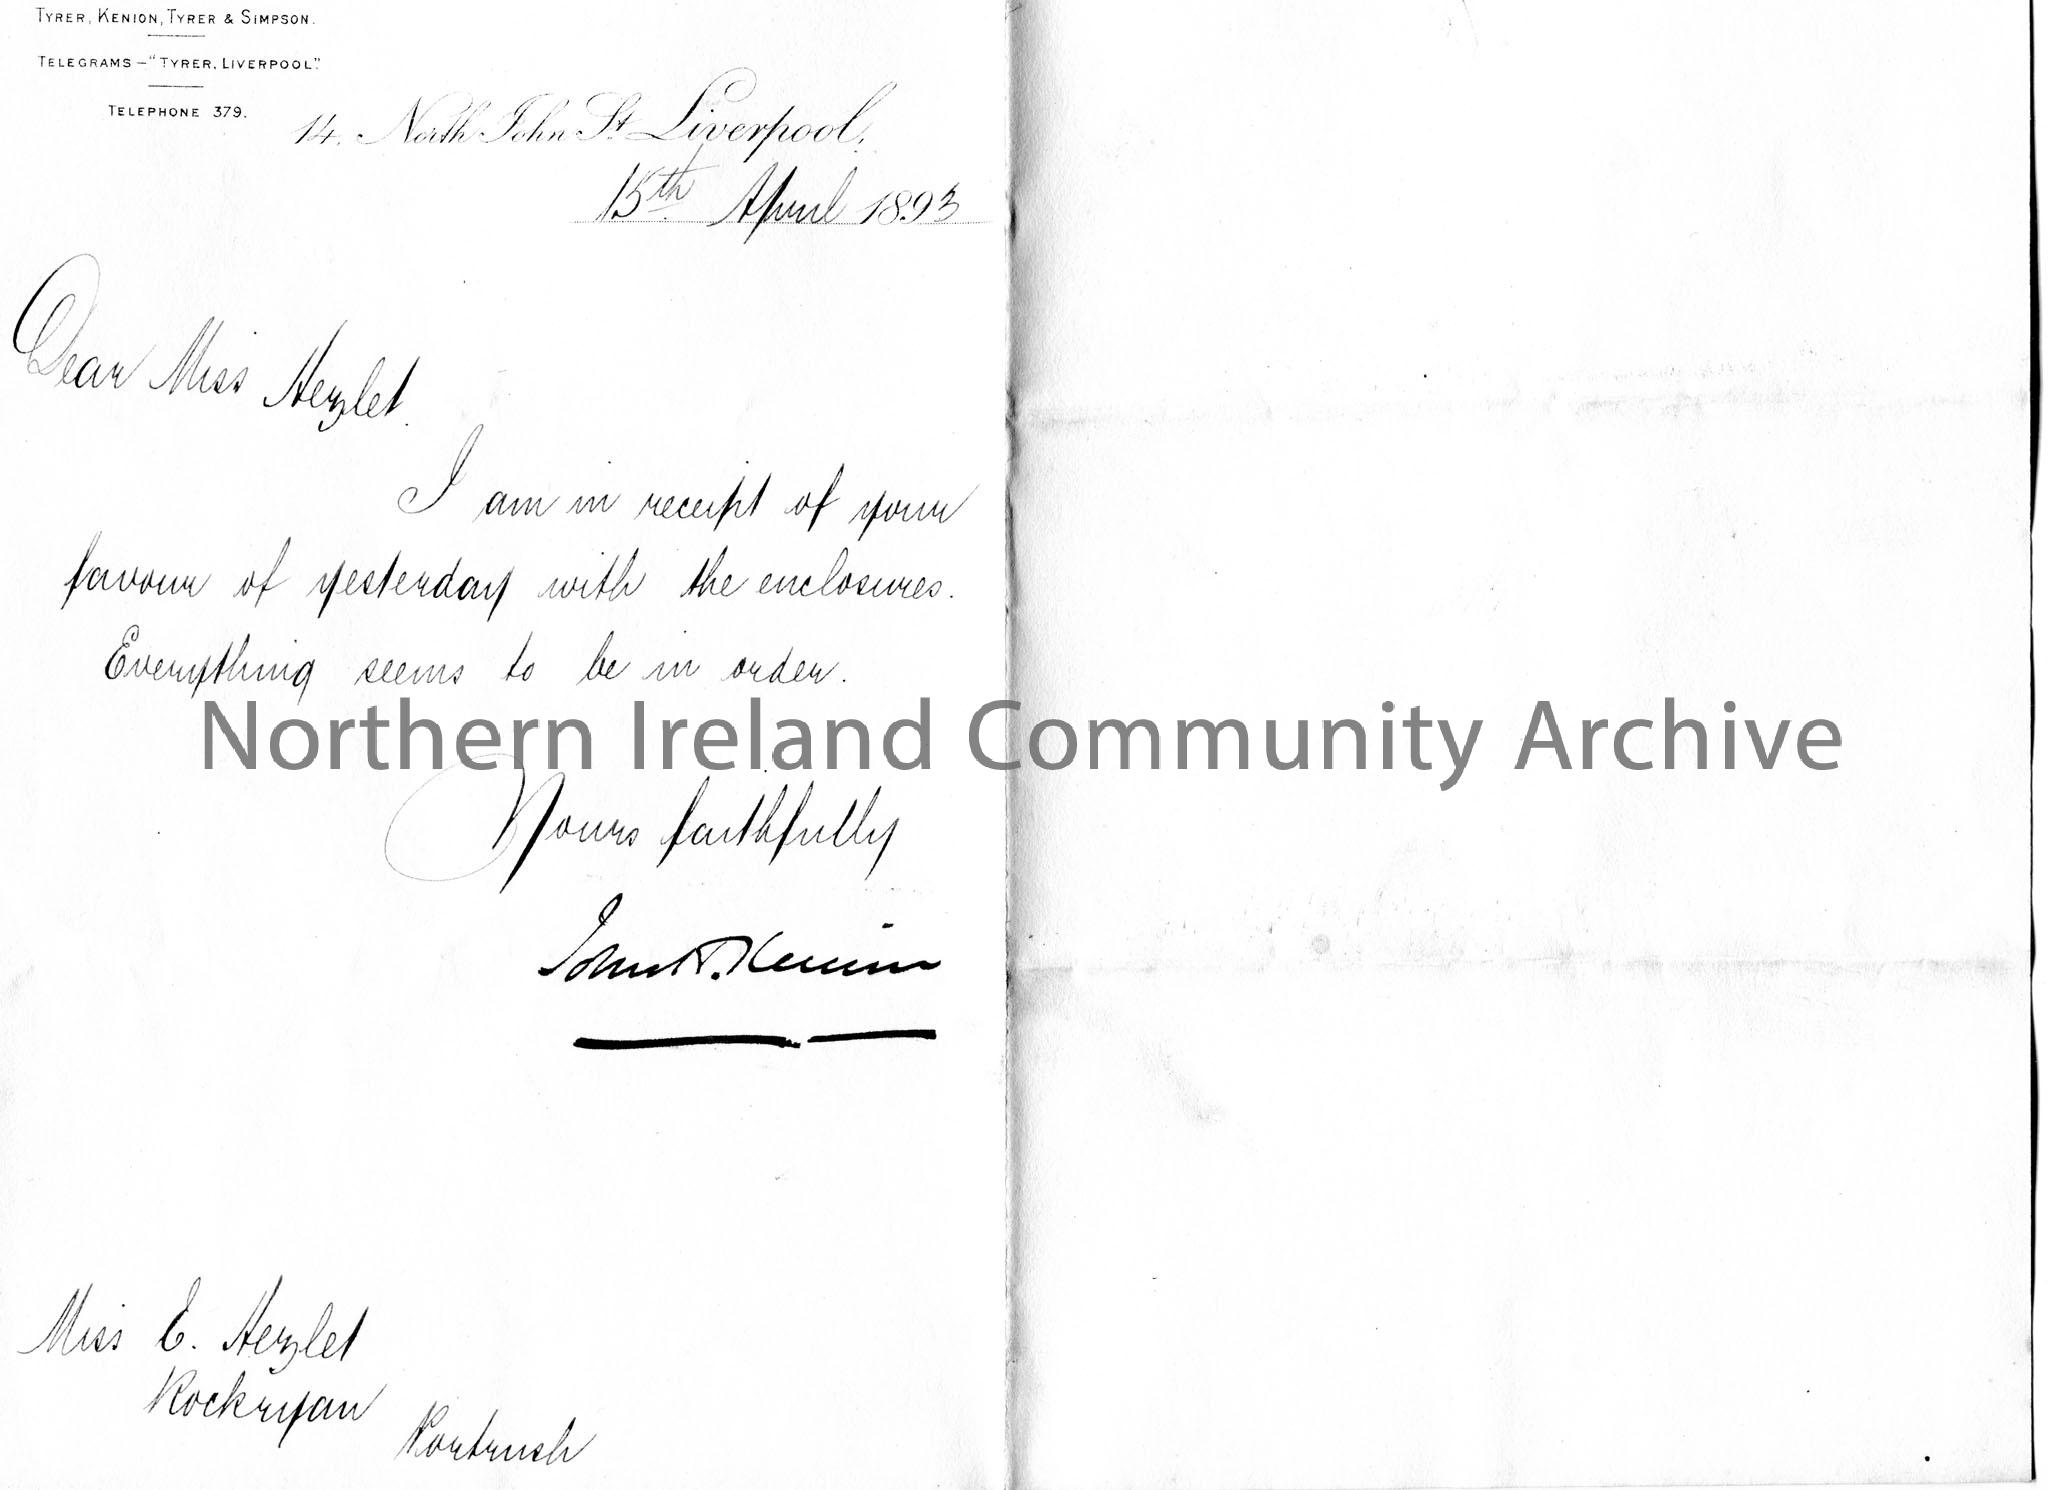 TYRER, KENION, TYRER & SIMPSON.
TELEGRAMS – "TYRER, LIVERPOOL".
TELEPHONE 379.
14. North John St. Liverpool.
15th April 1893
Dear Miss Hezlet.
I am in receipt of your
favour of yesterday with the enclosures.
Everything seems to be in order.
Northern Ireland Community Archive
Yours faithfully
John Kenion
Miss E. Hezlet
Rockryan
Portrush